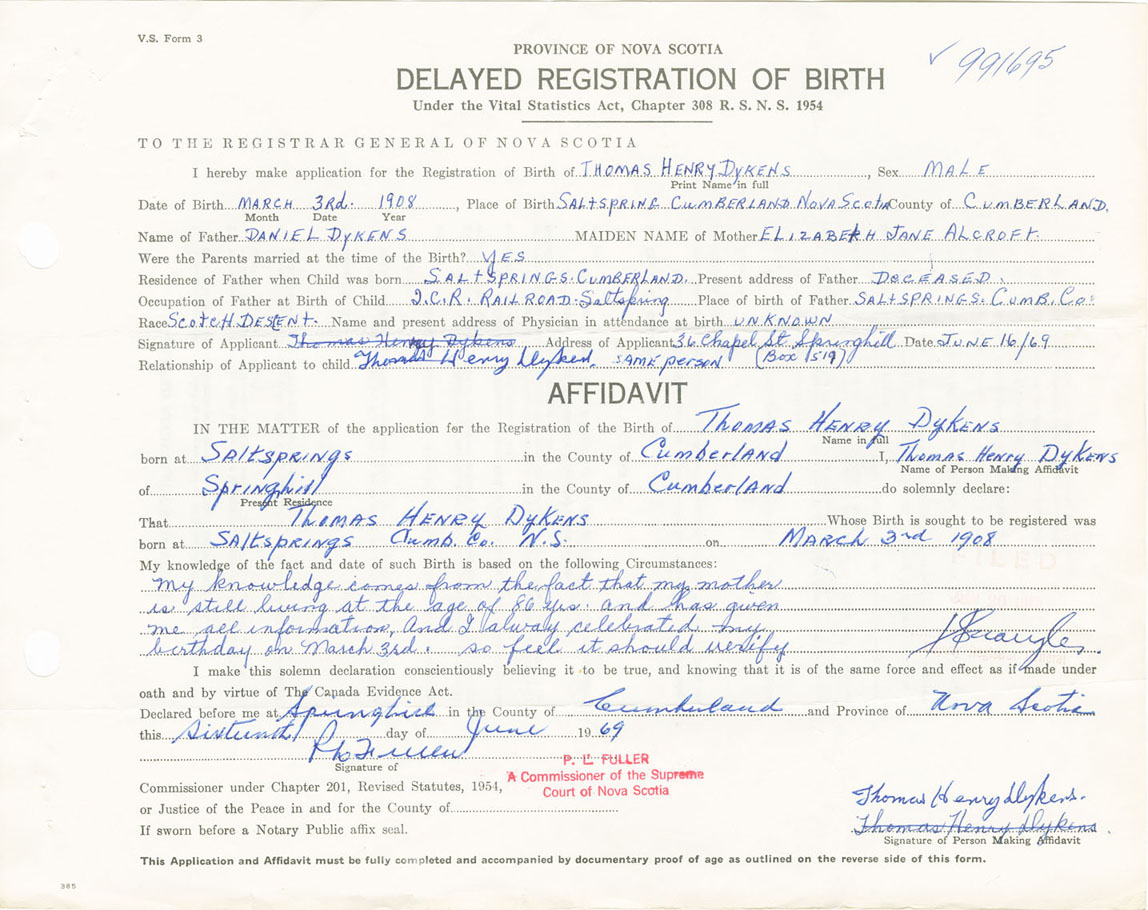 V.S. Form 3
PROVINCE OF NOVA SCOTIA
✓ 991695
DELAYED REGISTRATION OF BIRTH
Under the Vital Statistics Act, Chapter 308 R. S. N. S. 1954
TO THE REGISTRAR GENERAL OF NOVA SCOTIA
I hereby make application for the Registration of Birth of THOMAS HENRY DYKENS, Sex MALE
Print Name in full
Date of Birth MARCH 3RD. 1908, Place of Birth SALTSPRING CUMBERLAND NOVA SCOTIA County of CUMBERLAND.
Month Date Year
Name of Father DANIEL DYKENS MAIDEN NAME of Mother ELIZABETH JANE ALCROFT.
Were the Parents married at the time of the Birth? YES
Residence of Father when Child was born SALTSPRINGS. CUMBERLAND. Present address of Father DECEASED.
Occupation of Father at Birth of Child I.C.R. RAILROAD. Saltspring Place of birth of Father SALTSPRINGS. CUMB. Co.
Race SCOTCH DESTENT. Name and present address of Physician in attendance at birth UNKNOWN
Signature of Applicant Thomas Henry Dykens Address of Applicant 36 Chapel St. Springhill Date JUNE 16/69
Relationship of Applicant to child Thomas Henry Dykens. SAME PERSON (Box 519)
AFFIDAVIT
IN THE MATTER of the application for the Registration of the Birth of THOMAS HENRY DYKENS
Name in full
born at SALTSPRINGS in the County of CUMBERLAND I, THOMAS HENRY DYKENS
Name of Person Making Affidavit
of Springhill in the County of CUMBERLAND do solemnly declare:
Present Residence
That THOMAS HENRY DYKENS Whose Birth is sought to be registered was
born at SALTSPRINGS CUMB. Co. N.S. on MARCH 3rd 1908
My knowledge of the fact and date of such Birth is based on the following Circumstances:
My knowledge comes from the fact that my mother
is still living at the age of 86 yrs. and has given
me all information, And I alway celebrated my
birthday on March 3rd. so feel it should verify
I make this solemn declaration conscientiously believing it to be true, and knowing that it is of the same force and effect as if made under
oath and by virtue of The Canada Evidence Act.
Declared before me at Springhill in the County of Cumberland and Province of Nova Scotia
this Sixteenth day of June 1969
P L Fuller
Signature of
P. L. FULLER
A Commissioner of the Supreme
Court of Nova Scotia
Commissioner under Chapter 201, Revised Statutes, 1954,
or Justice of the Peace in and for the County of
If sworn before a Notary Public affix seal.
Thomas Henry Dykens.
Thomas Henry Dykens.
Signature of Person Making Affidavit
This Application and Affidavit must be fully completed and accompanied by documentary proof of age as outlined on the reverse side of this form.
385